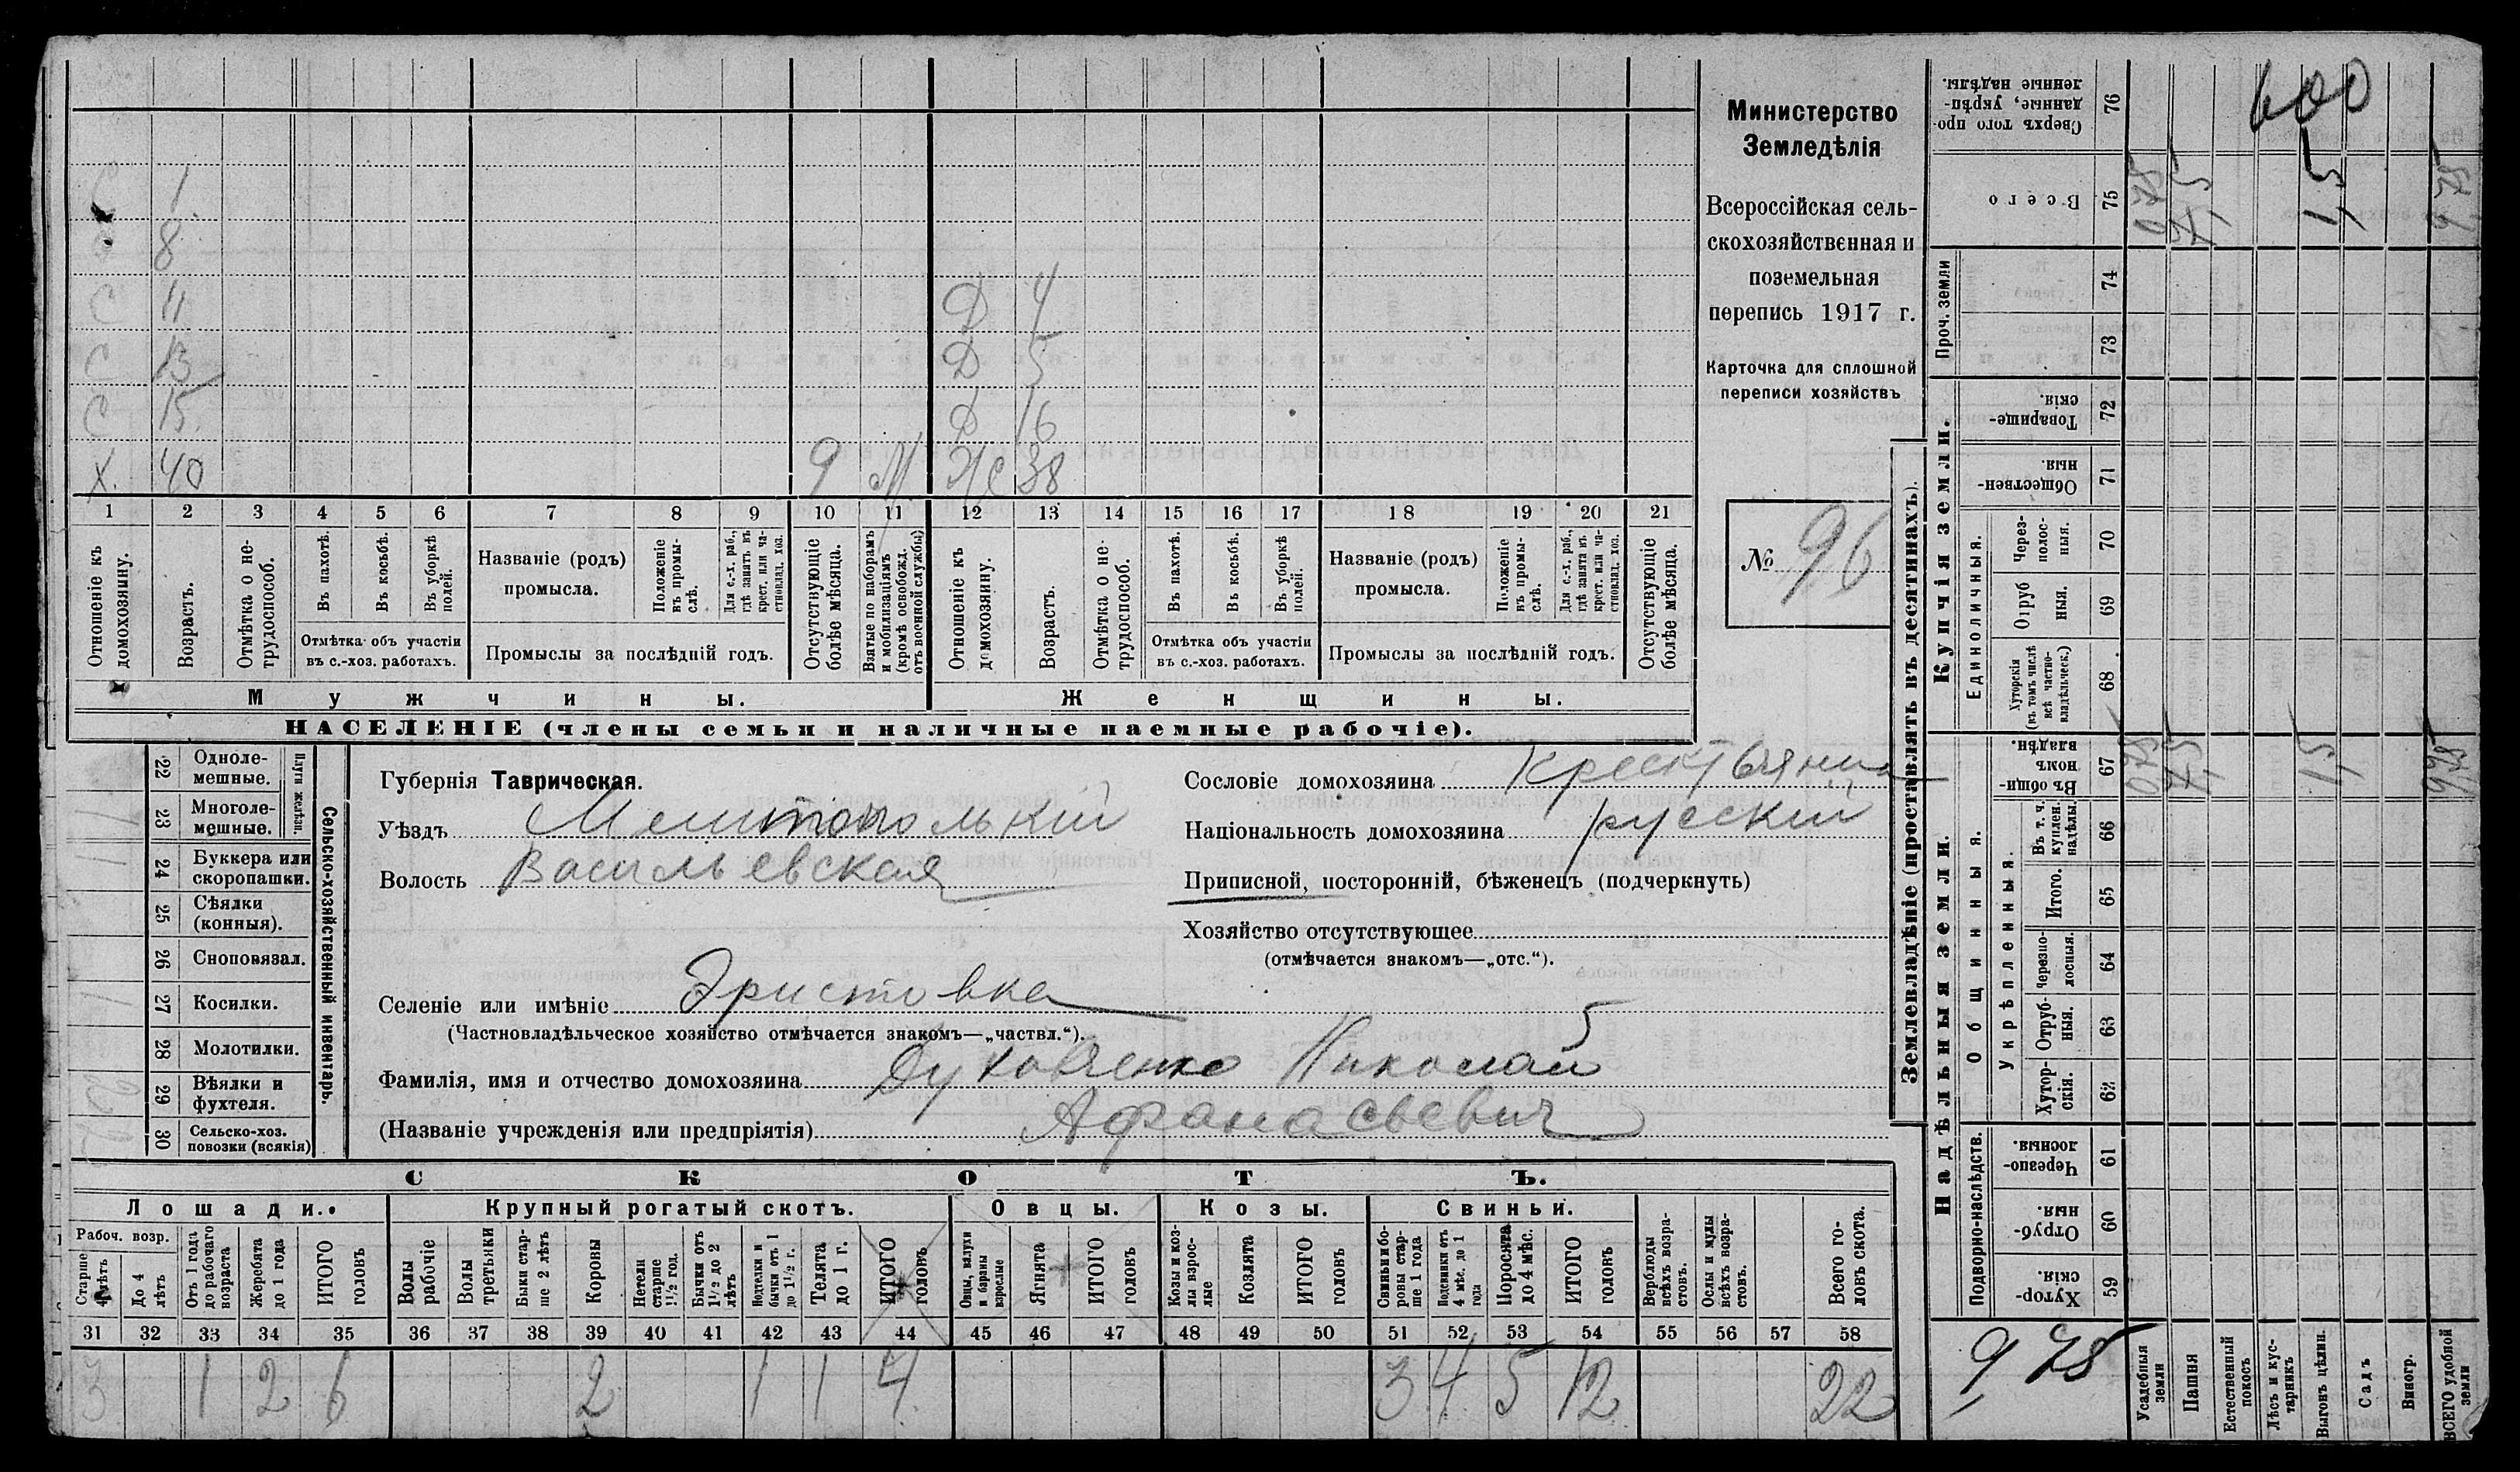 С 1
8
С 11 Д 4
С 13 Д 5
С 15 Д 16
Х. 40 9 М Ж 38
1 2 3 4 5 6 7 8 9 10 11 12 13 14 15 16 17 18 19 20 21
Отношеніе къ домохозяину.
Возрастъ.
Отмѣтка о не-
трудоспособ.
Въ пахотѣ.
Въ косьбѣ.
Въ уборкѣ
полей.
Отмѣтка объ участіи
въ с.-хоз. работахъ.
Названіе (родъ)
промысла.
Положеніе
въ промы-
слѣ.
Для с.-х. раб.,
гдѣ занятъ въ
крест. или ча-
стновлад. хоз.
Промыслы за послѣдній годъ.
Отсутствующіе
болѣе мѣсяца.
Взятые по наборамъ
и мобилизаціямъ
(кромѣ освобожд.
отъ военной службы)
Отношеніе къ
домохозяину.
Возрастъ.
Отмѣтка о не-
трудоспособ.
Въ пахотѣ.
Въ косьбѣ.
Въ уборкѣ
полей.
Отмѣтка объ участіи
въ с.-хоз. работахъ.
Названіе (родъ)
промысла.
Положеніе
въ промы-
слѣ.
Для с.-х. раб.,
гдѣ занята въ
крест. или ча-
стновлад. хоз.
Промыслы за послѣдній годъ.
Отсутствующіе
болѣе мѣсяца.
Мужчины.
Женщины.
НАСЕЛЕНІЕ (члены семьи и наличные наемные рабочіе).
Министерство
Земледѣлія
Всероссійская сель-
скохозяйственная и
поземельная
перепись 1917 г.
Карточка для сплошной
переписи хозяйствъ
№ 96
22 Одноле-
мешные.
23 Многоле-
мешные.
Плуги желѣзн.
24 Буккера или
скоропашки.
25 Сѣялки
(конныя).
26 Сноповязал.
27 Косилки.
28 Молотилки.
29 Вѣялки и
фухтеля.
30 Сельско-хоз.
повозки (всякія)
Сельско-хозяйственный инвентарь.
Губернія Таврическая.
Уѣздъ Мелитопольскій
Волость Васильевская
Селеніе или имѣніе Эристовка
(Частновладѣльческое хозяйство отмѣчается знакомъ—„частвл.“).
Фамилія, имя и отчество домохозяина Духовченко Николай
(Названіе учрежденія или предпріятія) Афанасьевич
Сословіе домохозяина Крестьянин
Національность домохозяина русскій
Приписной, посторонній, бѣженецъ (подчеркнуть)
Хозяйство отсутствующее
(отмѣчается знакомъ—„отс.“).
СКОТЪ.
Лошади.
Крупный рогатый скотъ.
Овцы.
Козы.
Свиньи.
Рабоч. возр.
Старше
4 лѣтъ
До 4
лѣтъ
Отъ 1 года
до рабочаго
возраста
Жеребята
до 1 года
ИТОГО
головъ
Волы
рабочіе
Волы
третьяки
Быки стар-
ше 2 лѣтъ
Коровы
Нетели
старше
1½ год.
Бычки отъ
1½ до 2
лѣтъ
Нетелки и
бычки отъ 1
до 1½ г.
Телята
до 1 г.
ИТОГО
головъ
Овцы, валухи
и бараны
взрослые
Ягнята
ИТОГО
головъ
Козы и коз-
лы взрос-
лые
Козлята
ИТОГО
головъ
Свиньи и бо-
ровы стар-
ше 1 года
Подсвинки отъ
4 мѣс. до 1
года
Поросята
до 4 мѣс.
ИТОГО
головъ
Верблюды
всѣхъ возра-
стовъ.
Ослы и мулы
всѣхъ возра-
стовъ.
Всего го-
ловъ скота.
31 32 33 34 35 36 37 38 39 40 41 42 43 44 45 46 47 48 49 50 51 52 53 54 55 56 57 58
3 1 2 6 2 1 1 4 3 4 5 12 22
Землевладѣніе (проставлять въ десятинахъ).
Надѣльныя земли.
Купчія земли.
Проч. земли
Подворно-наслѣдств.
Общинныя.
Укрѣпленныя.
Единоличныя.
Хутор-
скія. 59
Отруб-
ныя. 60
Черезпо-
лосныя. 61
Хутор-
скія. 62
Отруб-
ныя. 63
Черезпо-
лосныя. 64
Итого. 65
Въ т. ч.
куплен.
надѣлы. 66
Въ общин-
номъ
владѣн. 67
Хуторскія
(въ томъ числѣ
всѣ частно-
владѣльческ.) 68
Отруб
ныя. 69
Через-
полос-
ныя. 70
Обществен-
ныя. 71
Товарище-
скія. 72
73
74
Всего 75
Сверхъ того про-
данные, укрѣп-
ленные надѣлы. 76
Усадебныя
земли
Пашня
Естественный
покосъ
Лѣсъ и кус-
тарникъ
Выгонъ цѣлин.
Садъ
Виногр.
ВСЕГО удобной
земли
0,78 7,5 1,5 9,78
0,78 7,5 1,5 9,78
600
9,78